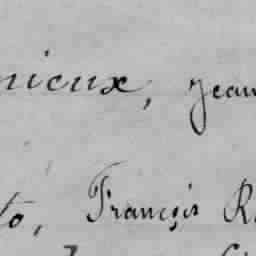 nieux, Jean
to, François R